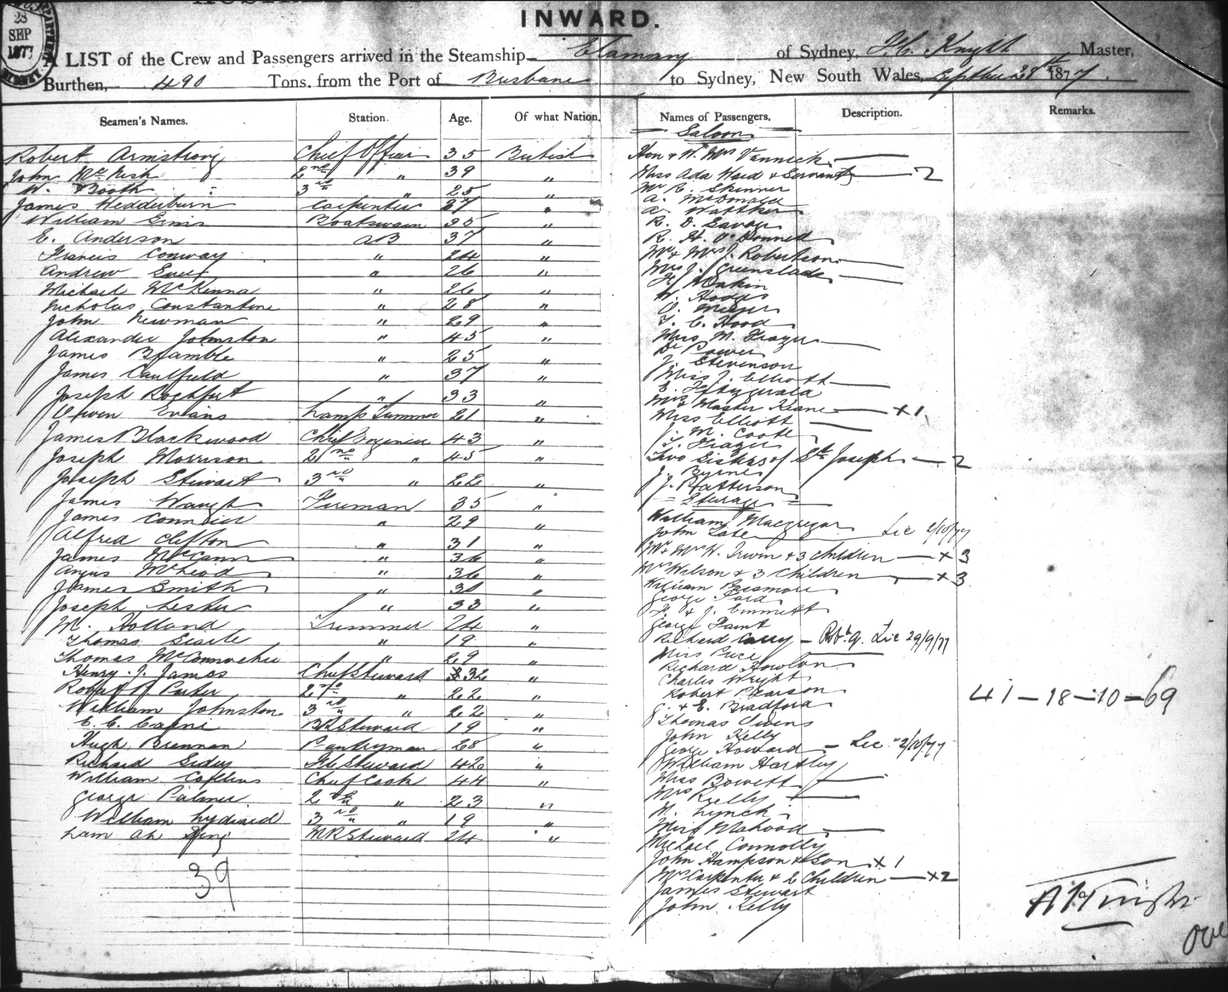 28
SEP
1877
SYDNEY
INWARD.
A LIST of the Crew and Passengers arrived in the Steamship of Sydney, Master,
Burthen, 490 Tons, from the Port of Brisbane to Sydney, New South Wales, 28th 1877.
Seamen's Names. Station. Age. Of what Nation.
Robert Armstrong Chief Officer 35 British
John McNish 2nd " 39 "
W. Booth 3rd " 25 "
James Hedderburn Carpenter 27 "
William Boatswain 35 "
E. Anderson AB 37 "
Francis Conway " 24 "
Andrew " 26 "
Michael McKenna " 26 "
Nicholas Constantine " 28 "
John Newman " 29 "
Alexander Johnston " 45 "
James Bramble " 25 "
James Caulfield " 37 "
Joseph Rochfort " 33 "
Owen Evans Lamp Trimmer 21 "
James Blackwood Chief Engineer 43 "
Joseph Morrison 2nd " 45 "
Joseph Stewart 3rd " 22 "
James Waugh Fireman 35 "
James " 29 "
Alfred Clifton " 31 "
James McCann " 36 "
Angus McLeod " 36 "
James Smith " 30 "
Joseph Lester " 33 "
M. Holland Trimmer 24 "
Thomas Searle " 19 "
Thomas " 29 "
Henry J. James Chief Steward 32 "
Robert P. Porter 2nd " 22 "
William Johnston 3rd " 22 "
C. C. Steward 19 "
Hugh Brennan Pantryman 28 "
Richard Steward 42 "
William Chief Cook 44 "
George Palmer 2nd " 23 "
William 3rd " 19 "
Lam Ah Steward 24 "
39
Names of Passengers, Description. Remarks.
Saloon
Hon & Mrs
Miss Ada Ward & Servant 2
Mr C. Skinner
A. McDonald
A.
R. D. Savage
R. H. O'Donnell
Mr & Mrs J. Robertson
Mrs J. Greenslade
W. Hodgs
O. Meyer
T. C. Hood
Mrs M. Frazer
Dr Power
J. Stevenson
Miss J. Elliott
E. Fitzgerald
Mrs & Master Keane x1
Miss Elliott
J. M. Cooke
T. Frazer
Two Sisters of St Joseph 2
J. Byrnes
J. Patterson
Steerage
William Macgregor
John Lee 2/10/77
Mr & Mrs H. Irwin & 3 children x 3
Mrs Wilson & 3 Children x 3
William
George Ford
& J. Emmett
George
Richard Carey 29/9/77
Miss
Richard
Charles Wright
Robert Pearson
G. & E. Bradford
Thomas Owens
John Kelly
George Howard 2/10/77
William Hartley
Miss
Mrs Kelly
Lynch
Miss Mahood
Michael Connolly
John Hampson & Son x 1
Mrs Carpenter & 2 Children x2
James Stewart
John Kelly
41-18-10-69
Over